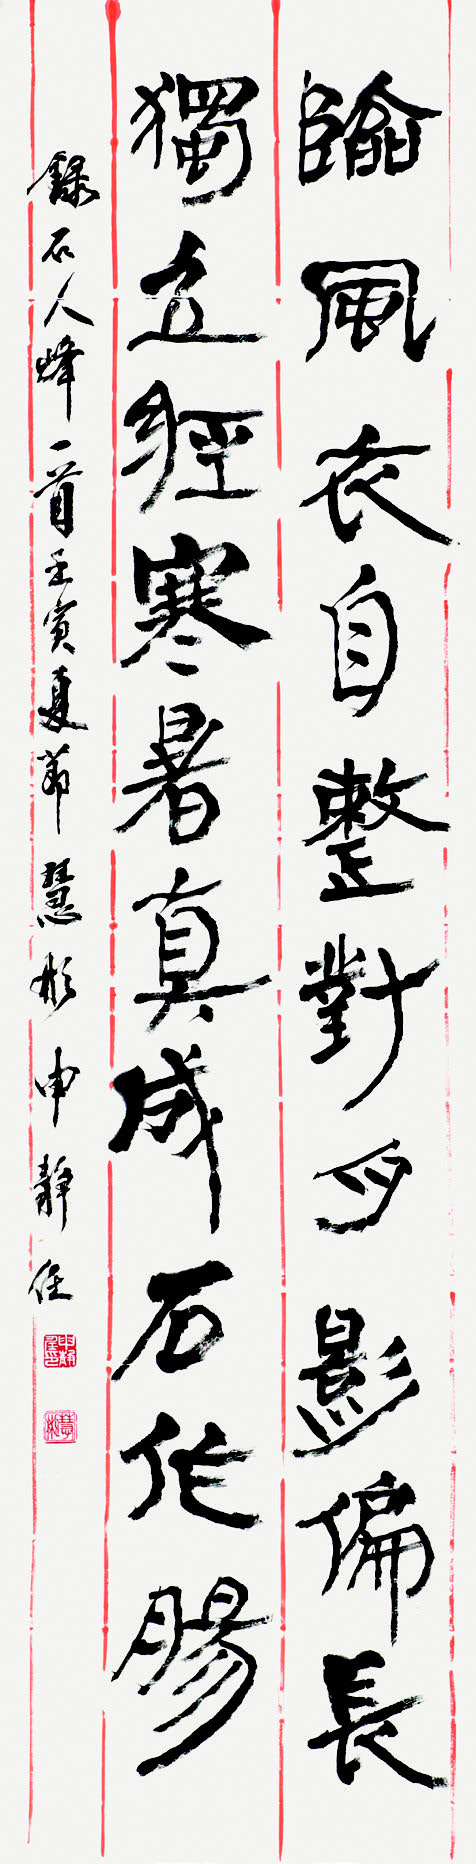 臨風衣自整對月影偏長
獨立經寒暑真成石作腸
錄石人峰一首壬寅夏節慧彬申靜任